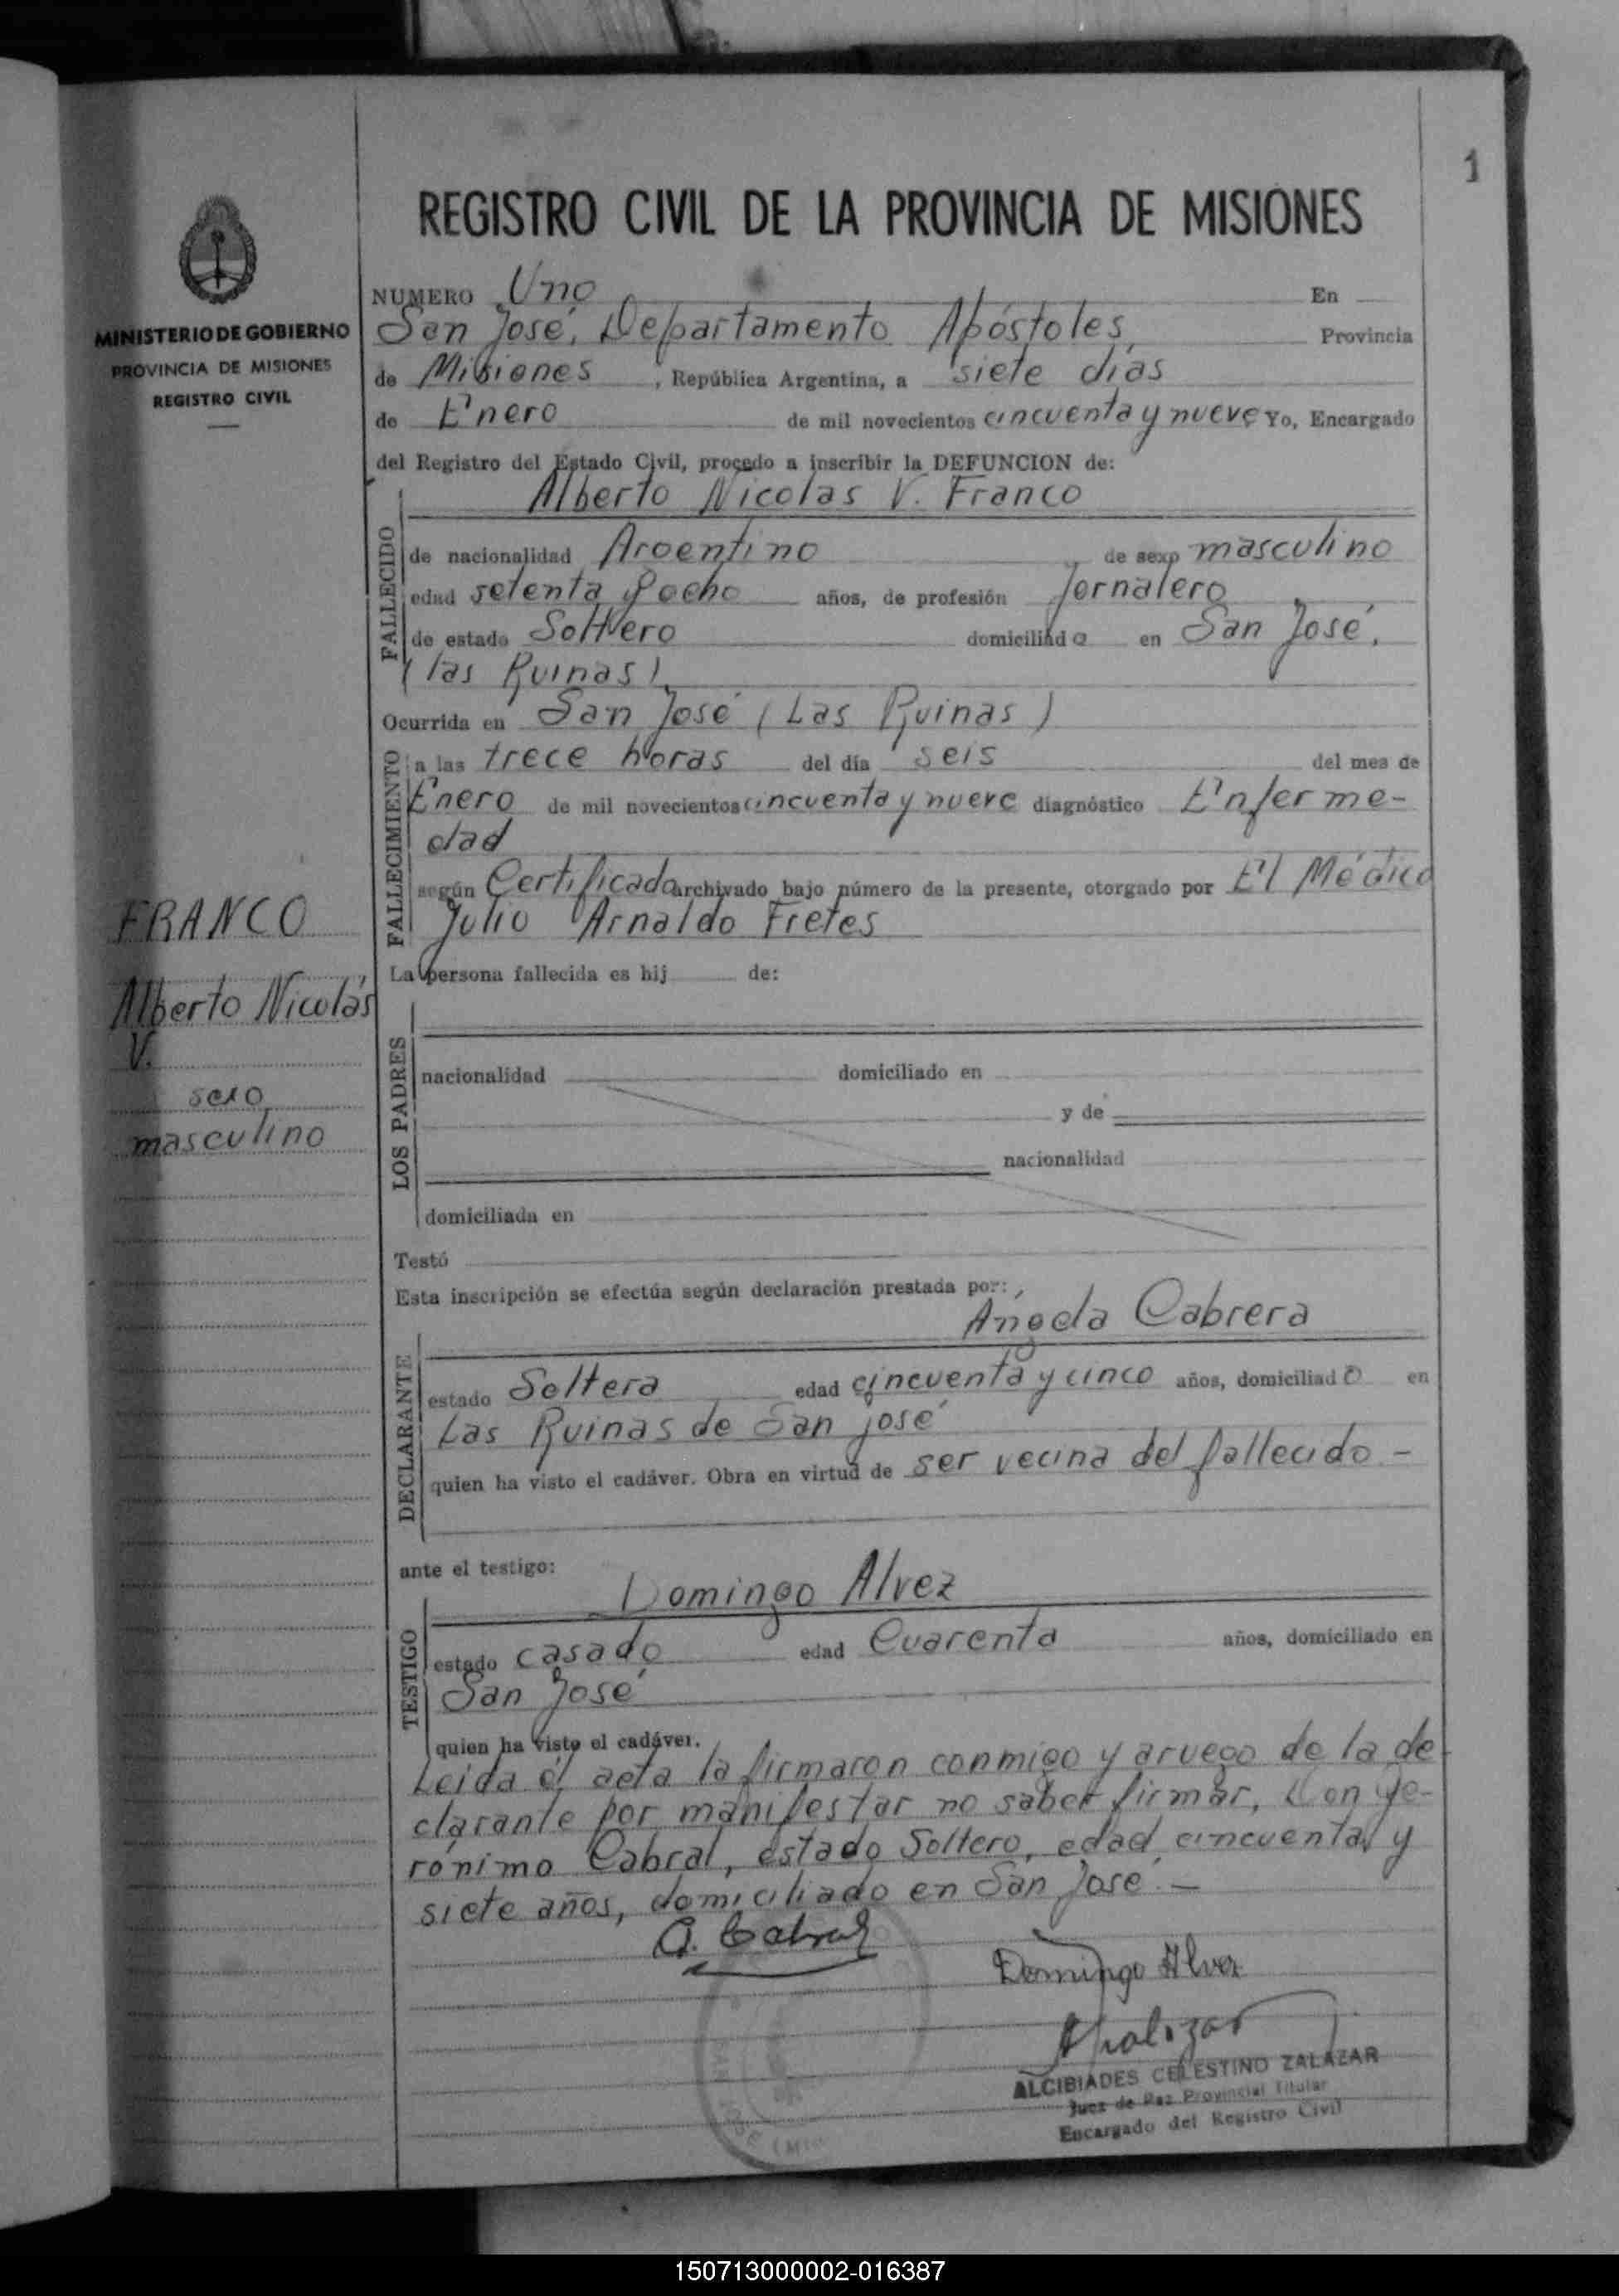 1
REGISTRO CIVIL DE LA PROVINCIA DE MISIONES
MINISTERIO DE GOBIERNO
PROVINCIA DE MISIONES
REGISTRO CIVIL
NUMERO Uno En
San José, Departamento Apóstoles, Provincia
de Misiones, República Argentina, a siete días
de Enero de mil novecientos cincuenta y nueve Yo, Encargado
del Registro del Estado Civil, procedo a inscribir la DEFUNCION de:
Alberto Nicolas V. Franco
FALLECIDO
de nacionalidad Argentino de sexo masculino
edad setenta y ocho años, de profesión Jornalero
de estado Soltero domiciliado en San José,
(las Ruinas)
Ocurrida en San José (Las Ruinas)
FALLECIMIENTO
a las trece horas del día seis del mes de
Enero de mil novecientos cincuenta y nueve diagnóstico Enferme-
dad
según Certificado archivado bajo número de la presente, otorgado por El Médico
Julio Arnaldo Fretes
FRANCO
Alberto Nicolás
V.
sexo
masculino
La persona fallecida es hij de:
LOS PADRES
nacionalidad domiciliado en
y de
nacionalidad
domiciliada en
Testó
Esta inscripción se efectúa según declaración prestada por:
Angela Cabrera
DECLARANTE
estado Soltera edad cincuenta y cinco años, domiciliado en
Las Ruinas de San José
quien ha visto el cadáver. Obra en virtud de ser vecina del fallecido -
ante el testigo:
Domingo Alvez
TESTIGO
estado casado edad Cuarenta años, domiciliado en
San José
quien ha visto el cadáver.
Leida el acta la firmaron conmigo y aruego de la de
clarante por manifestar no saber firmar, Don Ge-
rónimo Cabral, estado Soltero, edad cincuenta y
siete años, domiciliado en San José. -
G. Cabral
Domingo Alvez
ALCIBIADES CELESTINO ZALAZAR
Juez de Paz Provincial Titular
Encargado del Registro Civil
150713000002-016387